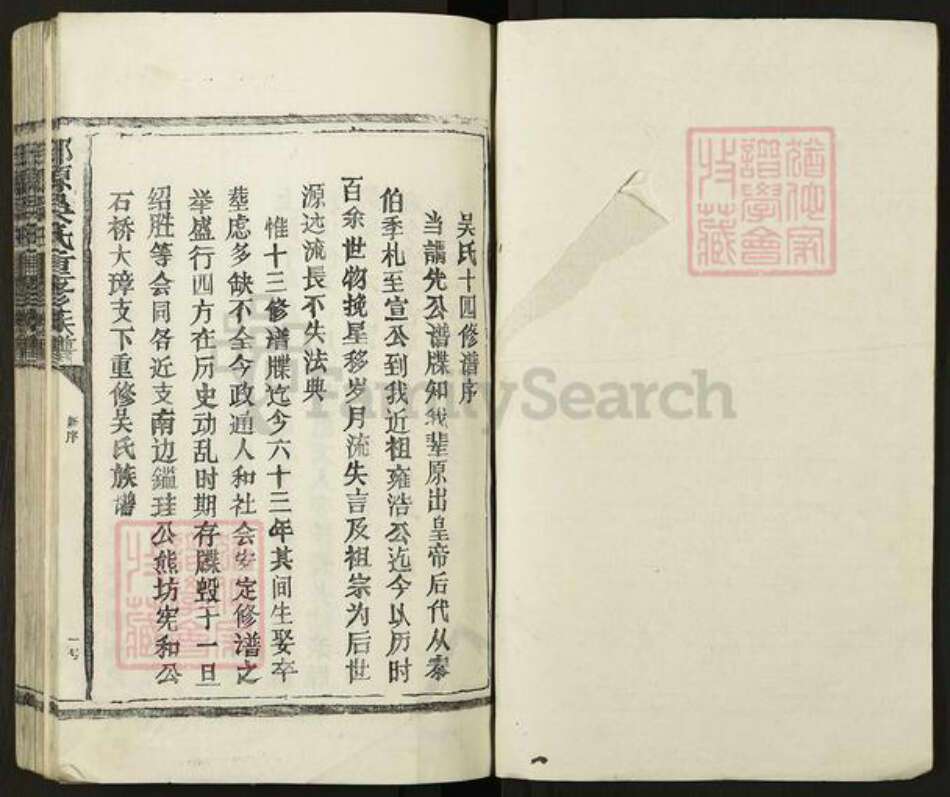 吴氏十四修谱序
当讀先公谱牒知我辈原出皇帝后代从泰
伯季札至宣公到我近祖雍浩公迄今以历时
百余世物挽星移岁月流失言及祖宗为后世
源远流長不失法典
惟十三修谱牒迄今六十三年其间生娶卒
塟虑多缺不全今政通人和社会安定修谱之
举盛行四方在历史动乱时期存牒毁于一旦
绍胜等会同各近支南边鎦珪公熊坊宪和公
石桥大璋支下重修吴氏族谱
源吴氏重修族譜
新序
一号
猶他家
譜學會
收藏
猶他家
譜學會
收藏
FamilySearch